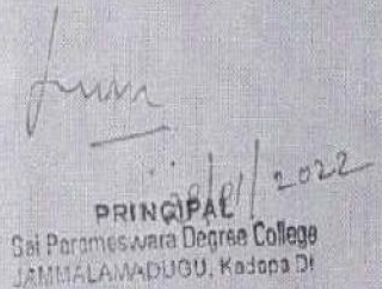 2022
PRINCIPAL
Sai Parameswara Degree College
JAMMALAMADUGU, Kadapa Dt